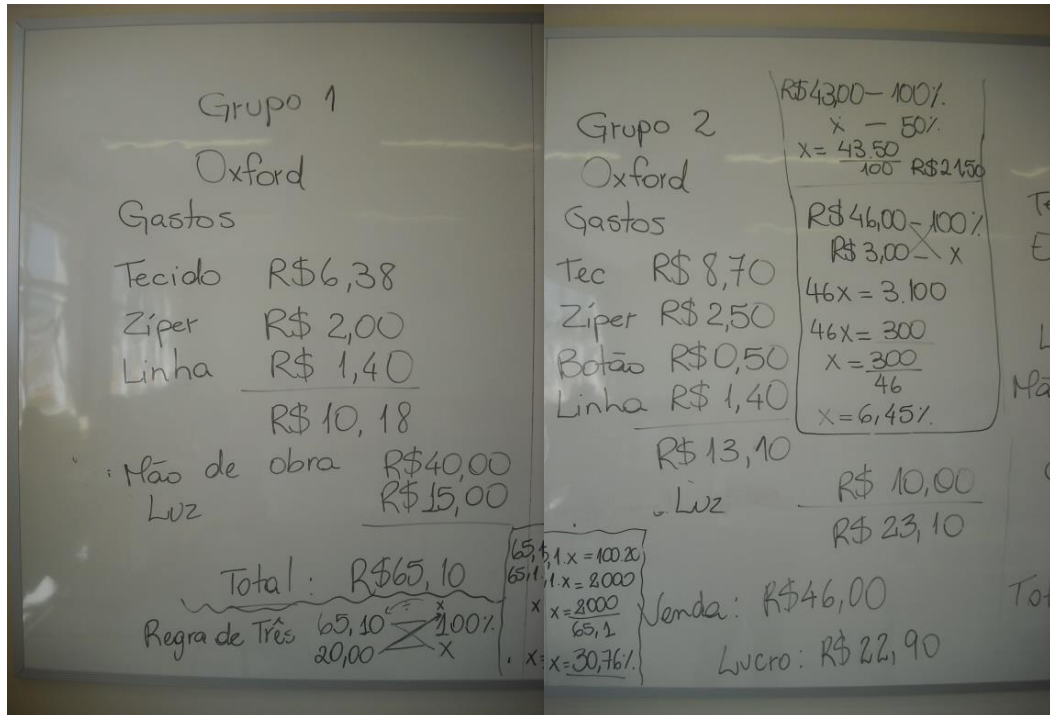 Grupo 1
Oxford
Gastos
Tecido R$6,38
Zíper R$ 2,00
Linha R$ 1,40
R$ 10,18
Mão de obra R$40,00
Luz R$15,00
Total: R$65,10
Regra de Três 65,10 100%
20,00 X
65,1
65,1.
x
x=
Grupo 2
Oxford
Gastos
Tec R$ 8,70
Zíper R$ 2,50
Botão R$ 0,50
Linha R$ 1,40
R$ 13,10
Luz R$ 10,00
R$ 23,10
Venda: R$46,00
Lucro: R$ 22,90
R$43,00 – 100%
x – 50%
x = 43.50
100 R$21,50
R$46,00 – 100%
R$ 3,00 – x
46x = 3.100
46x = 300
x = 300
46
x = 6,45%
1.x = 100.20
1.x = 2000
x = 2000
65,1
x = 30,76%
Te
E
L
Mã
Tot